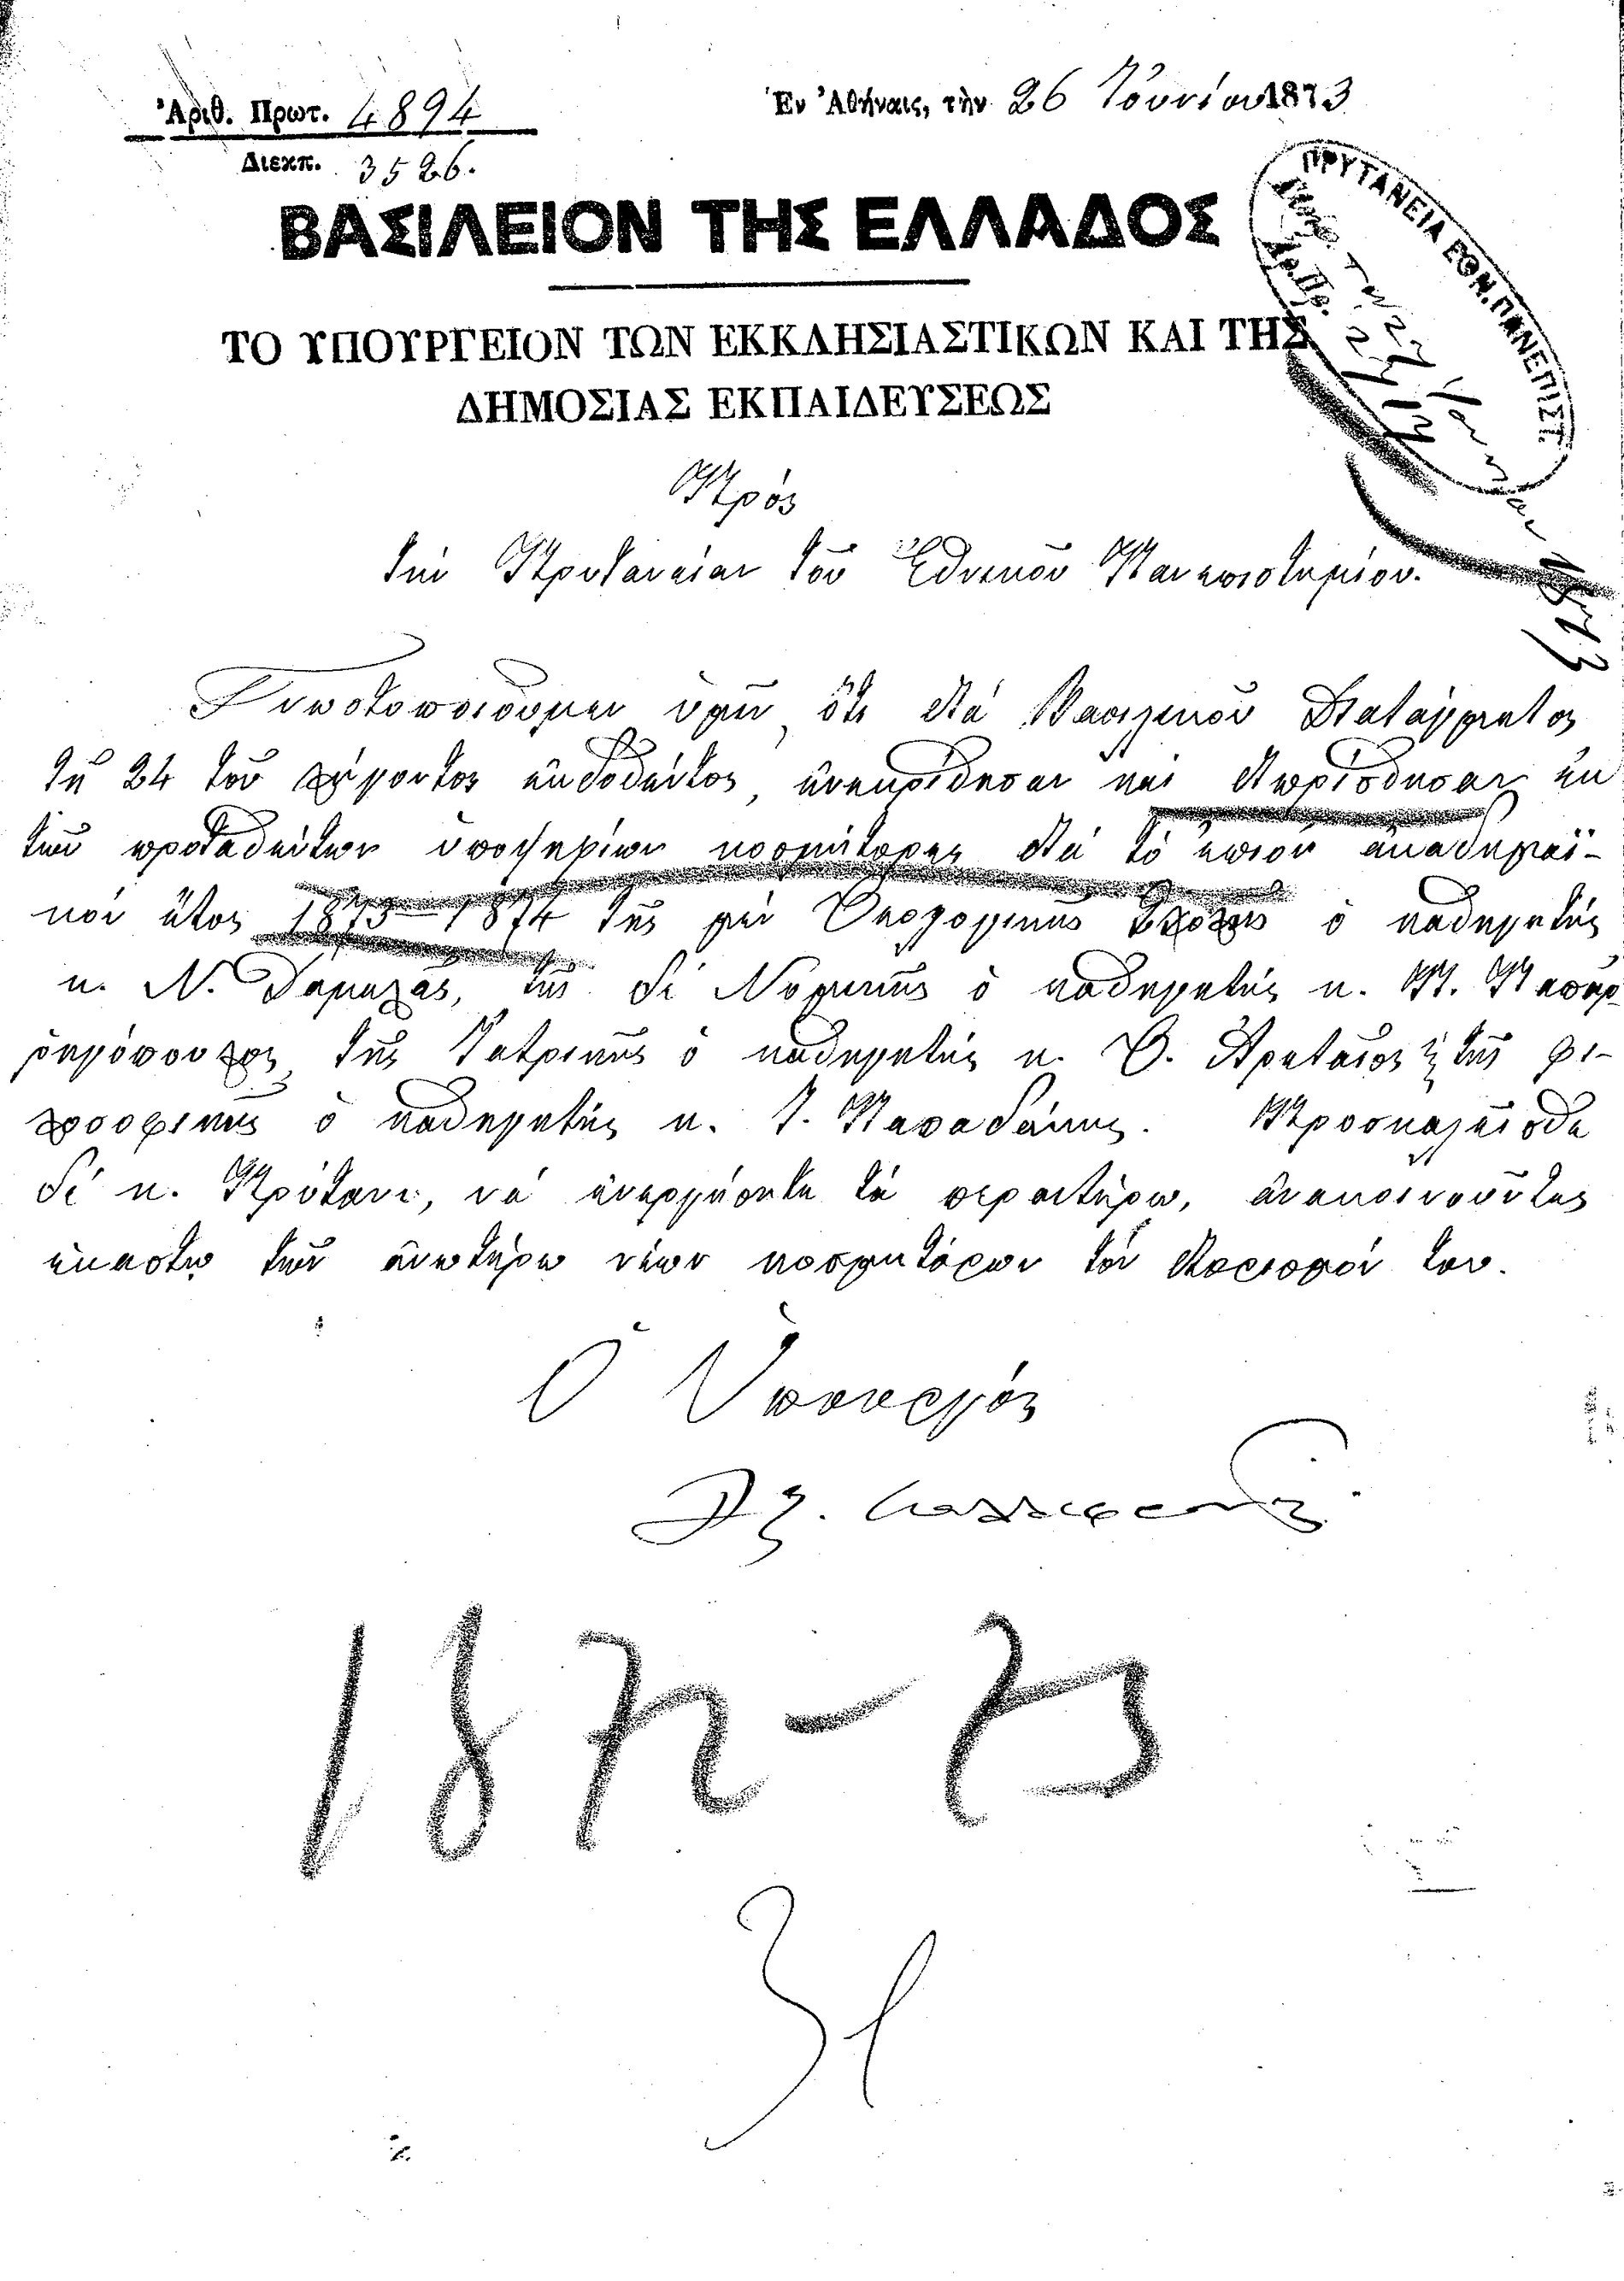 Ἀριθ. Πρωτ. 4894
Διεκπ. 3526.
Ἐν Ἀθήναις, τὴν 26 Ἰουνίου 1873
ΒΑΣΙΛΕΙΟΝ ΤΗΣ ΕΛΛΑΔΟΣ
ΤΟ ΥΠΟΥΡΓΕΙΟΝ ΤΩΝ ΕΚΚΛΗΣΙΑΣΤΙΚΩΝ ΚΑΙ ΤΗΣ
ΔΗΜΟΣΙΑΣ ΕΚΠΑΙΔΕΥΣΕΩΣ
ΠΡΥΤΑΝΕΙΑ ΕΘΝ. ΠΑΝΕΠΙΣΤ.
Πρὸς
τὴν Πρυτανείαν τοῦ Ἐθνικοῦ Πανεπιστημίου.
Γνωστοποιοῦμεν ὑμῖν, ὅτι διὰ Βασιλικοῦ Διατάγματος
τῇ 24 τοῦ λήγοντος ἐκδοθέντος, ἐνεκρίθησαν καὶ διωρίσθησαν ἐκ
τῶν προταθέντων ὑποψηφίων κοσμήτορες διὰ τὸ ἐπιὸν ἀκαδημαϊ-
κὸν ἔτος 1873-1874 τῆς μὲν Θεολογικῆς Σχολῆς ὁ καθηγητὴς
κ. Ν. Δαμαλᾶς, τῆς δὲ Νομικῆς ὁ καθηγητὴς κ. Π. Παπαρ-
ρηγόπουλος, τῆς Ἰατρικῆς ὁ καθηγητὴς κ. Θ. Ἀρεταῖος καὶ τῆς φι-
λοσοφικῆς ὁ καθηγητὴς κ. Ι. Παπαδάκης. Προσκαλεῖσθε
δὲ κ. Πρύτανι, νὰ ἐνεργήσητε τὰ περαιτέρω, ἀνακοινοῦντες
ἑκάστῳ τῶν ἀνωτέρω νέων κοσμητόρων τὸν διορισμόν του.
Ὁ Ὑπουργὸς
1872-73
31